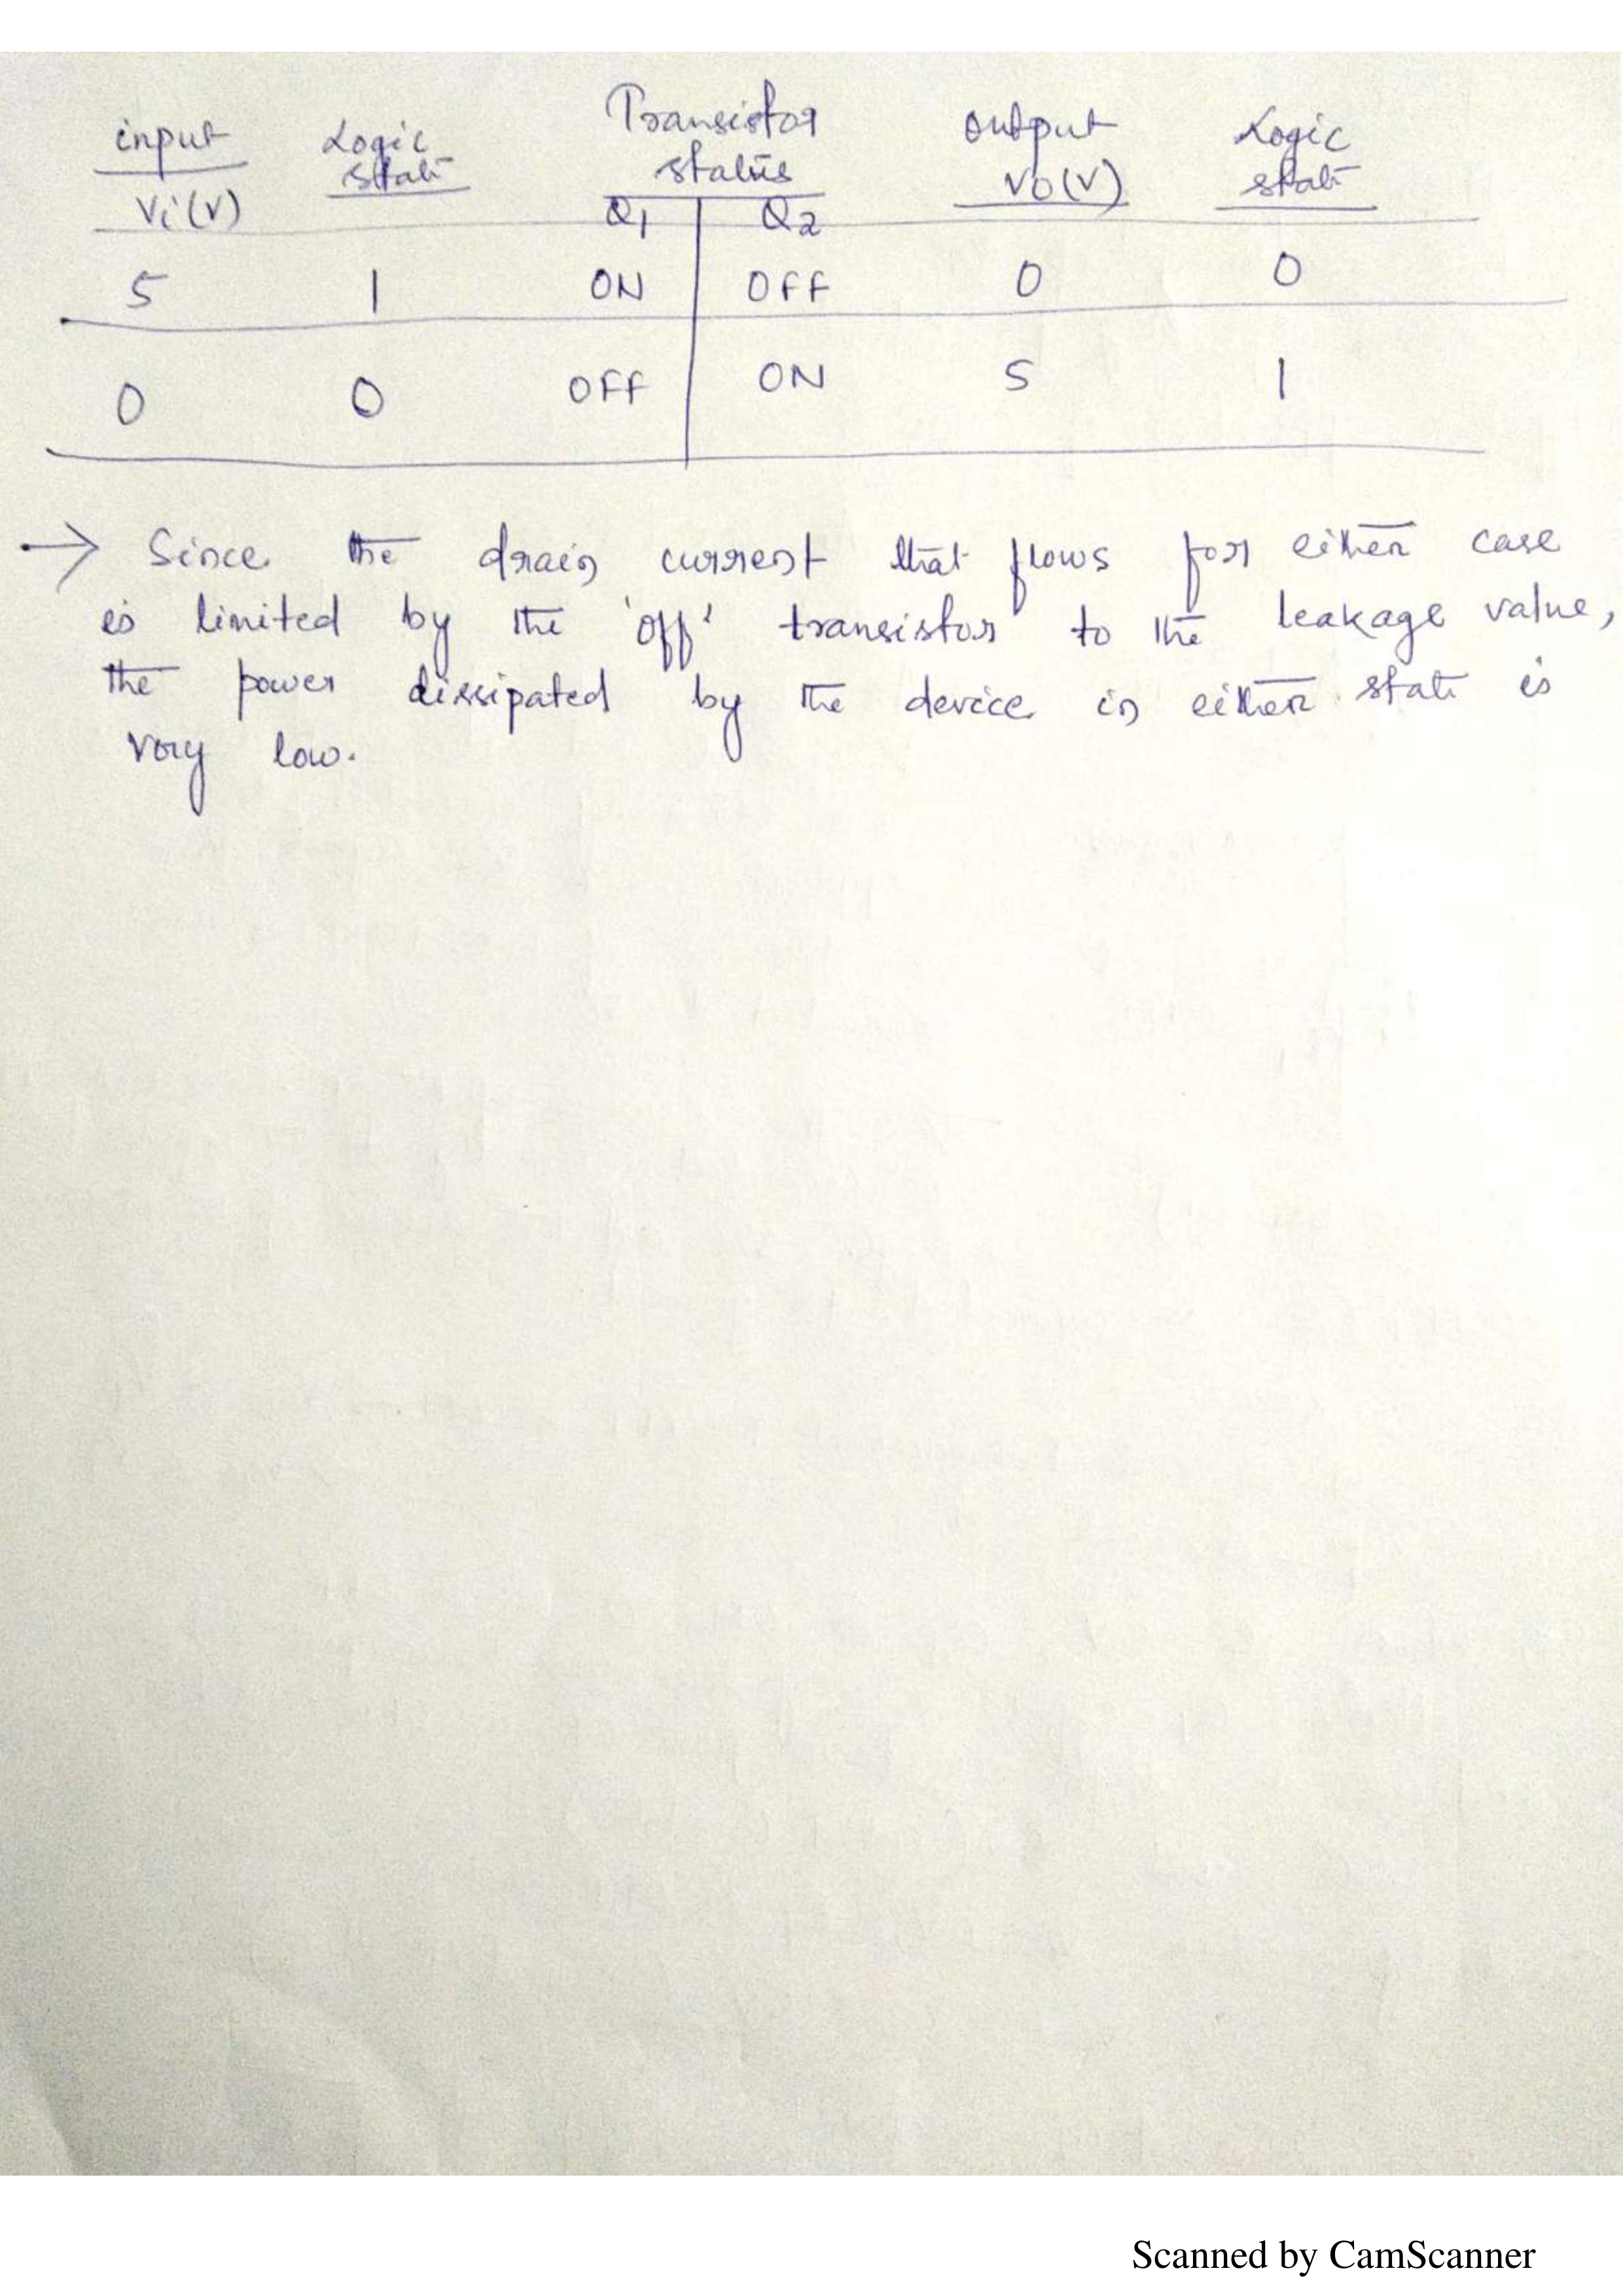 input Logic Transistor output Logic
state status Vo(V) state
Vi(V) Q1 Q2
5 1 ON OFF 0 0
0 0 OFF ON 5 1
→ Since the drain current that flows for either case
is limited by the 'off' transistor to the leakage value,
the power dissipated by the device in either state is
very low.
Scanned by CamScanner